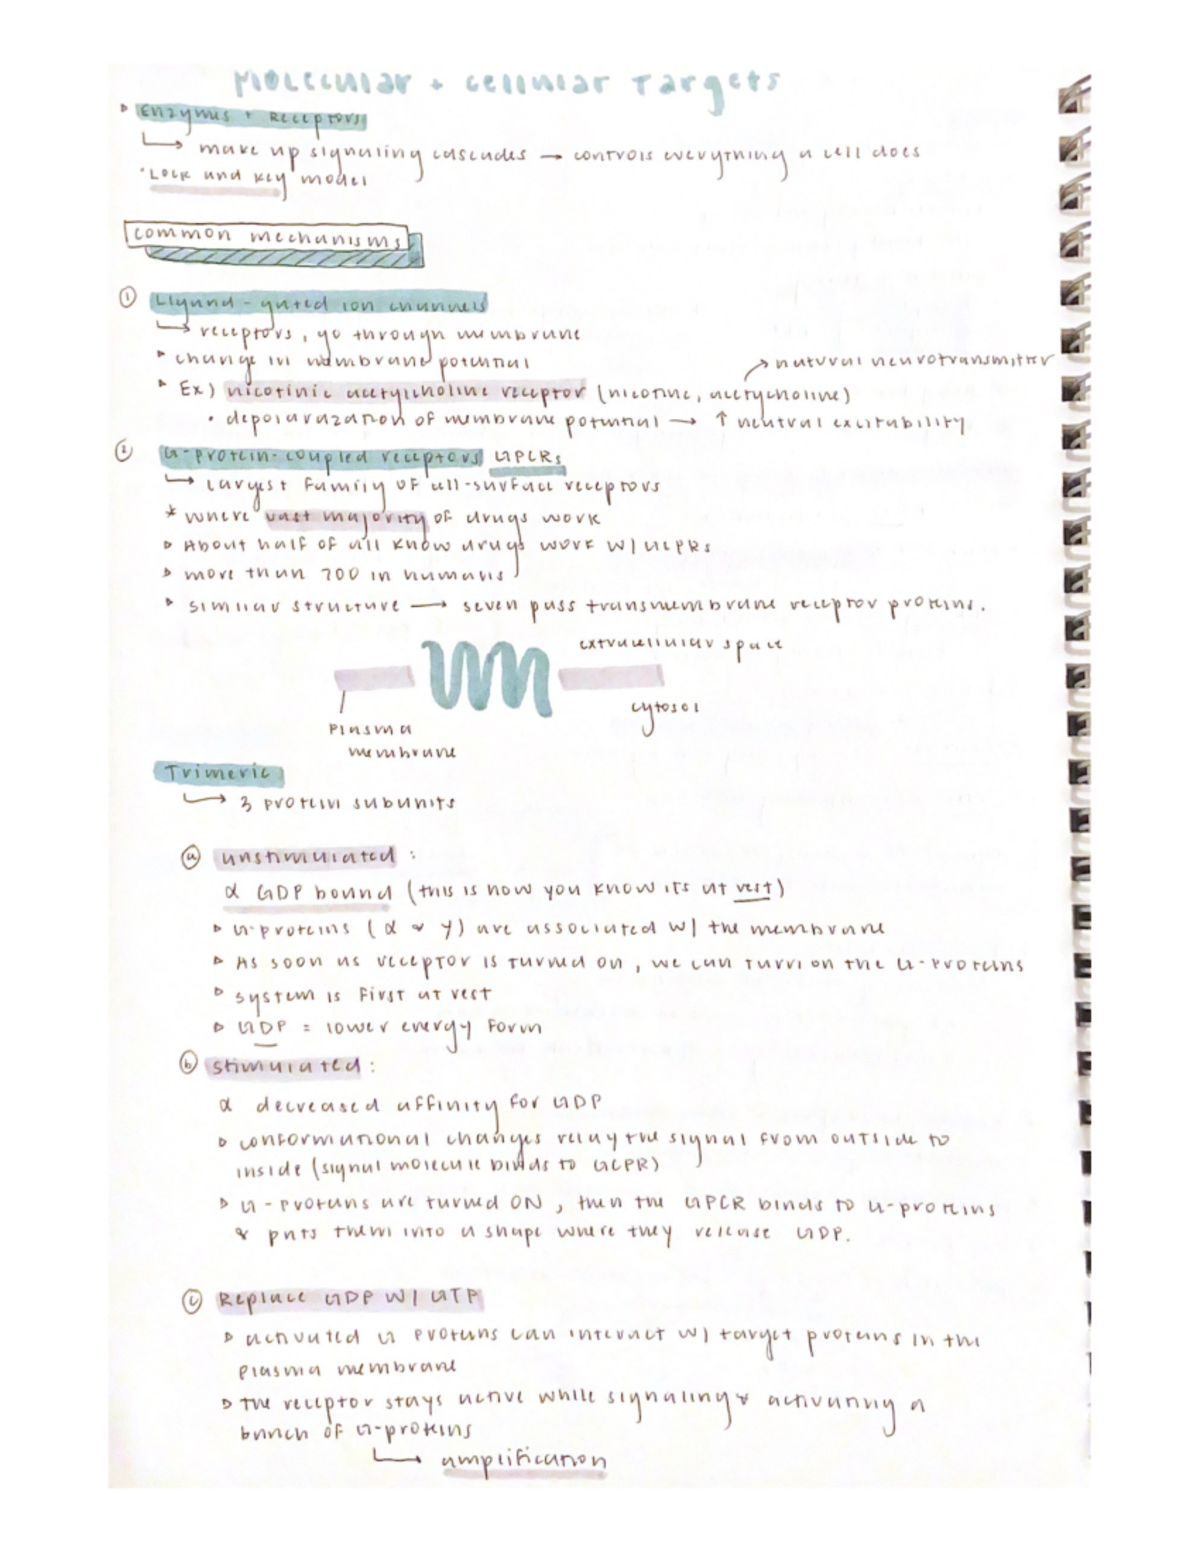 Molecular + Cellular Targets
Enzymes + Receptors
make up signaling cascades → controls everything a cell does
Lock and key model
common mechanisms
① Ligand-gated ion channels
receptors, go through membrane
change in membrane potential
→ natural neurotransmitter
Ex) nicotinic acetylcholine receptor (nicotine, acetycholine)
• depolarazation of membrane potential → ↑ neutral excitability
② G-protein-coupled receptors GPCRs
largest family of cell-surface receptors
* where vast majority of drugs work
About half of all know drugs work w/ GCPRs
more than 700 in humans
similar structure → seven pass transmembrane receptor proteins.
extracellular space
cytosol
Plasma
membrane
Trimeric
3 protein subunits
ⓐ unstimulated :
α GDP bound (this is how you know its at rest)
G-proteins (α & γ) are associated w/ the membrane
As soon as receptor is turned on, we can turn on the G-Proteins
system is first at rest
GDP = lower energy form
ⓑ stimulated :
α decreased affinity for GDP
conformational changes relay the signal from outside to
inside (signal molecule binds to GCPR)
G-Proteins are turned ON, then the GPCR binds to G-proteins
& puts them into a shape where they release GDP.
ⓒ Replace GDP w/ GTP
activated G proteins can interact w/ target proteins in the
plasma membrane
The receptor stays active while signaling & activating a
bunch of G-proteins
amplification